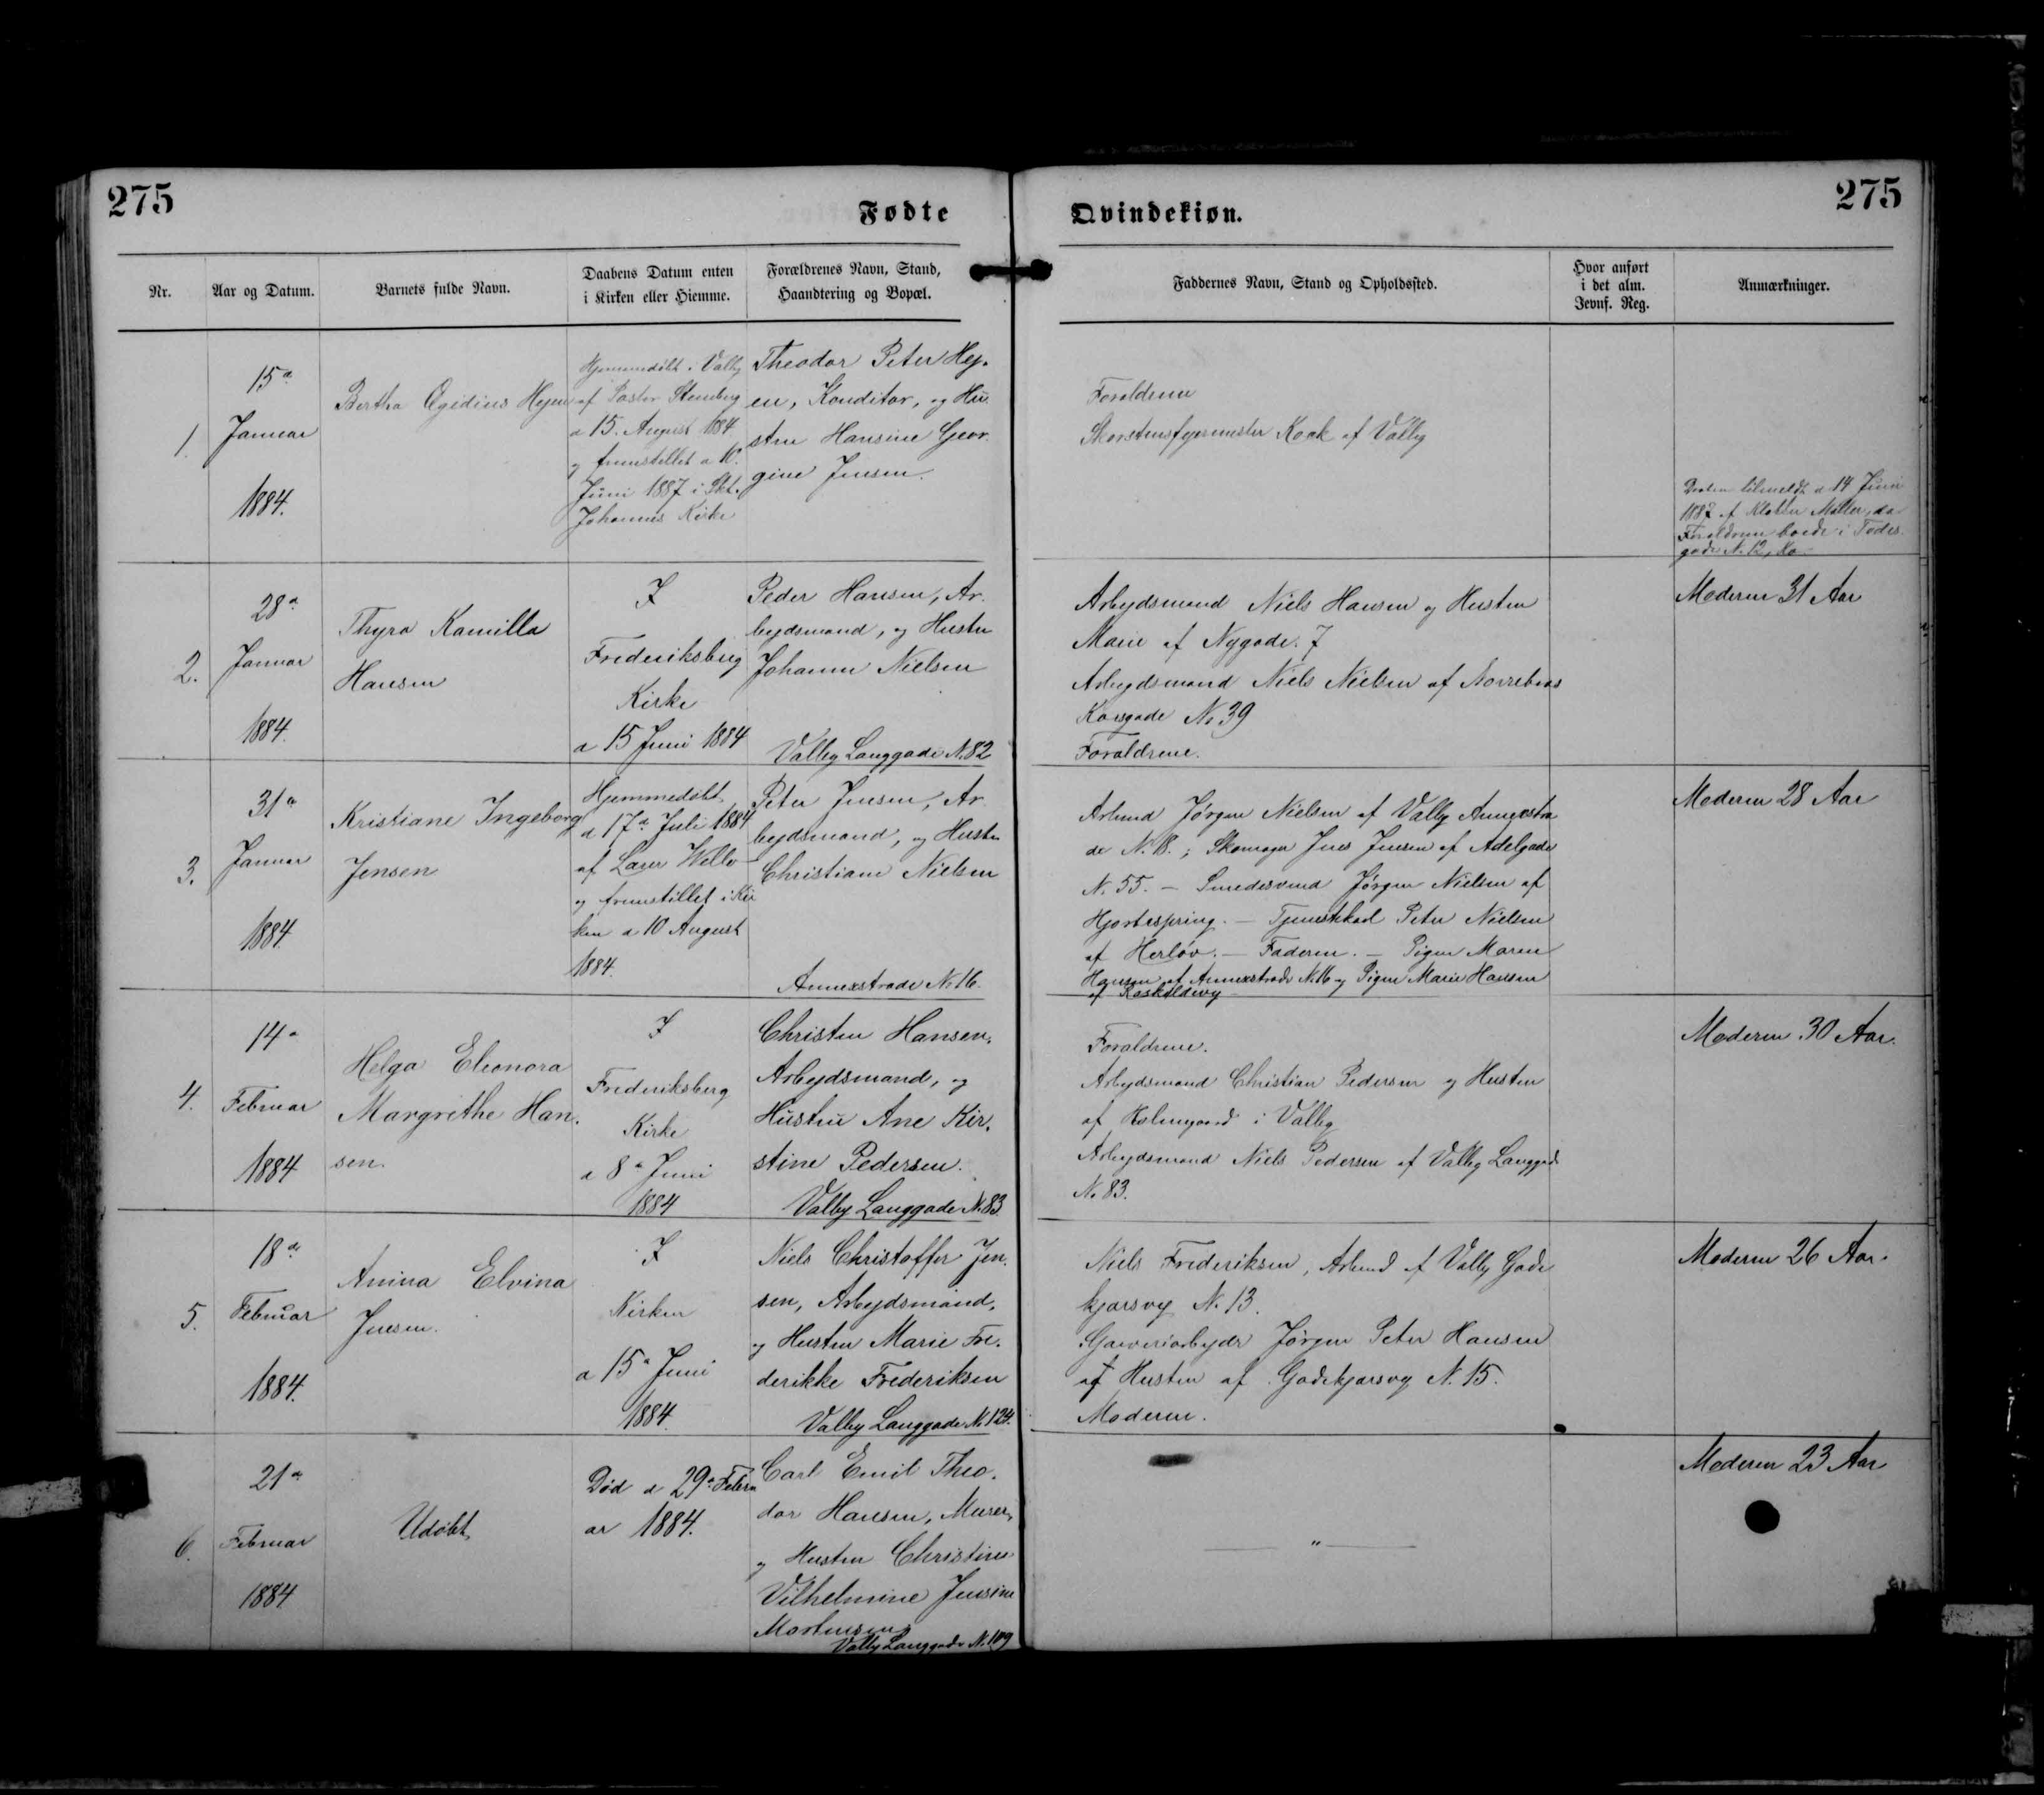 275
Fødte
Qvindekiøn.
275
Nr.
Aar og Datum.
Barnets fulde Navn.
Daabens Datum enten
i Kirken eller Hiemme.
Forældrenes Navn, Stand,
Haandtering og Bopæl.
Faddernes Navn, Stand og Opholdssted.
Hvor anført
i det alm.
Jevnf. Reg.
Anmærkninger.
1.
15d
Januar
1884.
Bertha Ægidius Hejen
Hjemmedøbt i Valby
af Pastor Stenberg
d 15. August 1884
og fremstillet d 10.
Juni 1887 i Skt.
Johannes Kirke
Theodor Peter Hej-
en, Konditor, og Hu
stru Hansine Geor-
gine Jensen.
Forældrene
Skorstensfejermester Kook af Valby
Daaben tilmeldt d 14 Juni
1887 af Klokker Møller, da
Forældrene boede i Fælled
gade N. 12,
2.
28d
Januar
1884.
Thyra Kamilla
Hansen
I
Frederiksberg
Kirke
d 15 Juni 1884
Peder Hansen, Ar-
bejdsmand, og Hustru
Johanne Nielsen
Valby Langgade N. 82
Arbejdsmand Niels Hansen og Hustru
Marie af Nygade. 7
Arbejdsmand Niels Nielsen af Nørrebros
Korsgade No 39
Forældrene.
Moderen 31 Aar
3.
31d
Januar
1884
Kristiane Ingeborg
Jensen
Hjemmedøbt
d 17d Juli 1884
af Lærer
og fremstillet i Kir
ken d 10 August
1884.
Peter Jensen, Ar-
bejdsmand, og Hustru
Christiane Nielsen
Annexstræde No 16.
Arbmd Jørgen Nielsen af Valby Annexstræ
de N. 18.; Skomager Jens Jensen af Adelgade
N. 55. — Smedesvend Jørgen Nielsen af
Hjortespring. — Tjenestekarl Peter Nielsen
af Herløv. — Faderen. — Pigen Maren
Hansen af Annexstræde N. 16 og Pigen Marie Hansen
af Roskildevej
Moderen 28 Aar
4.
14d
Februar
1884
Helga Eleonora
Margrethe Han-
sen.
I
Frederiksberg
Kirke
d 8d Juni
1884
Christen Hansen,
Arbejdsmand, og
Hustru Ane Kir-
stine Pedersen.
Valby Langgade N. 83.
Forældrene.
Arbejdsmand Christian Pedersen og Hustru
af Holmegaard i Valby
Arbejdsmand Niels Pedersen af Valby Langgade
No 83.
Moderen 30 Aar.
5.
18d
Februar
1884.
Anina Elvina
Jensen.
I
Kirken
d 15d Juni
1884.
Niels Christoffer Jen-
sen, Arbejdsmand,
og Hustru Marie Fre-
derikke Frederiksen
Valby Langgade No 124.
Niels Frederiksen, Arbmd af Valby Gade
kjærsvej No 13.
Garveriarbejder Jørgen Peter Hansen
af Hustru af Gadekjærsvej N. 15.
Moderen.
Moderen 26 Aar.
6.
21d
Februar
1884
Udøbt
Død d 29d Febru
ar 1884.
Carl Emil Theo-
dor Hansen, Murer,
og Hustru Christine
Vilhelmine Jensine
Mortensen
Valby Langgade N. 109
— " —
Moderen 23 Aar